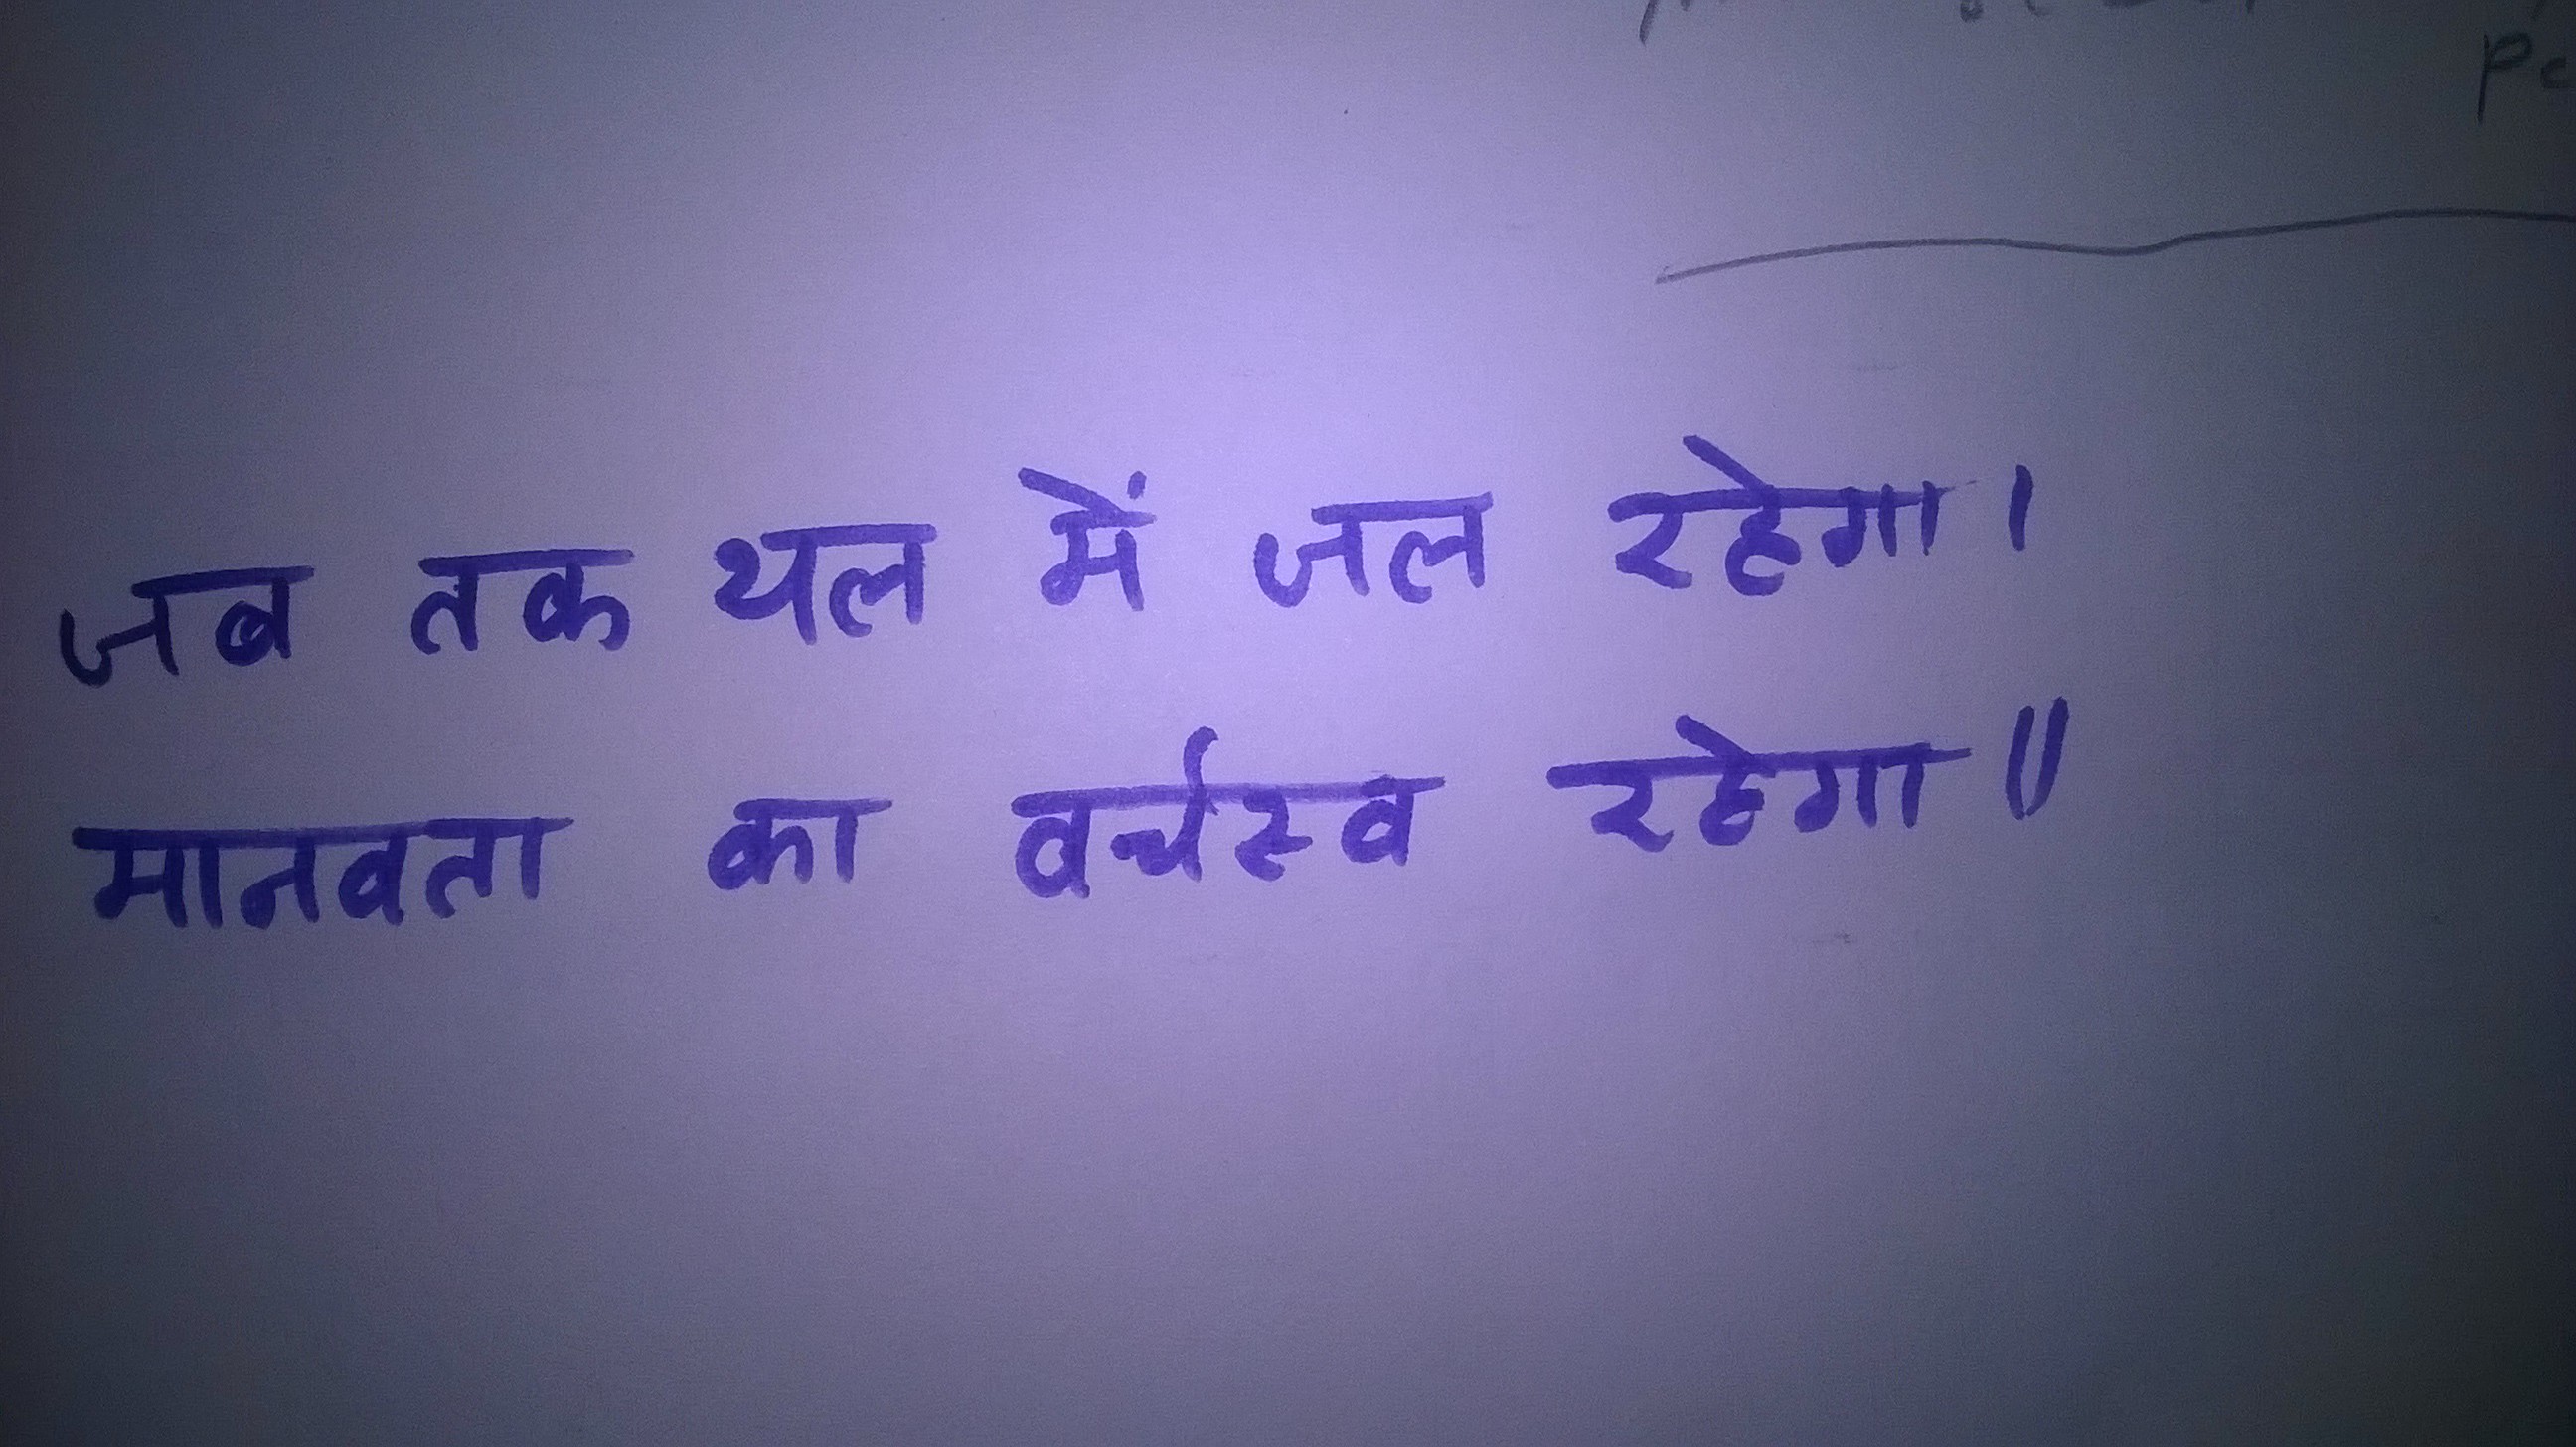 जब तक थल में जल रहेगा।
मानवता का वर्चस्व रहेगा॥